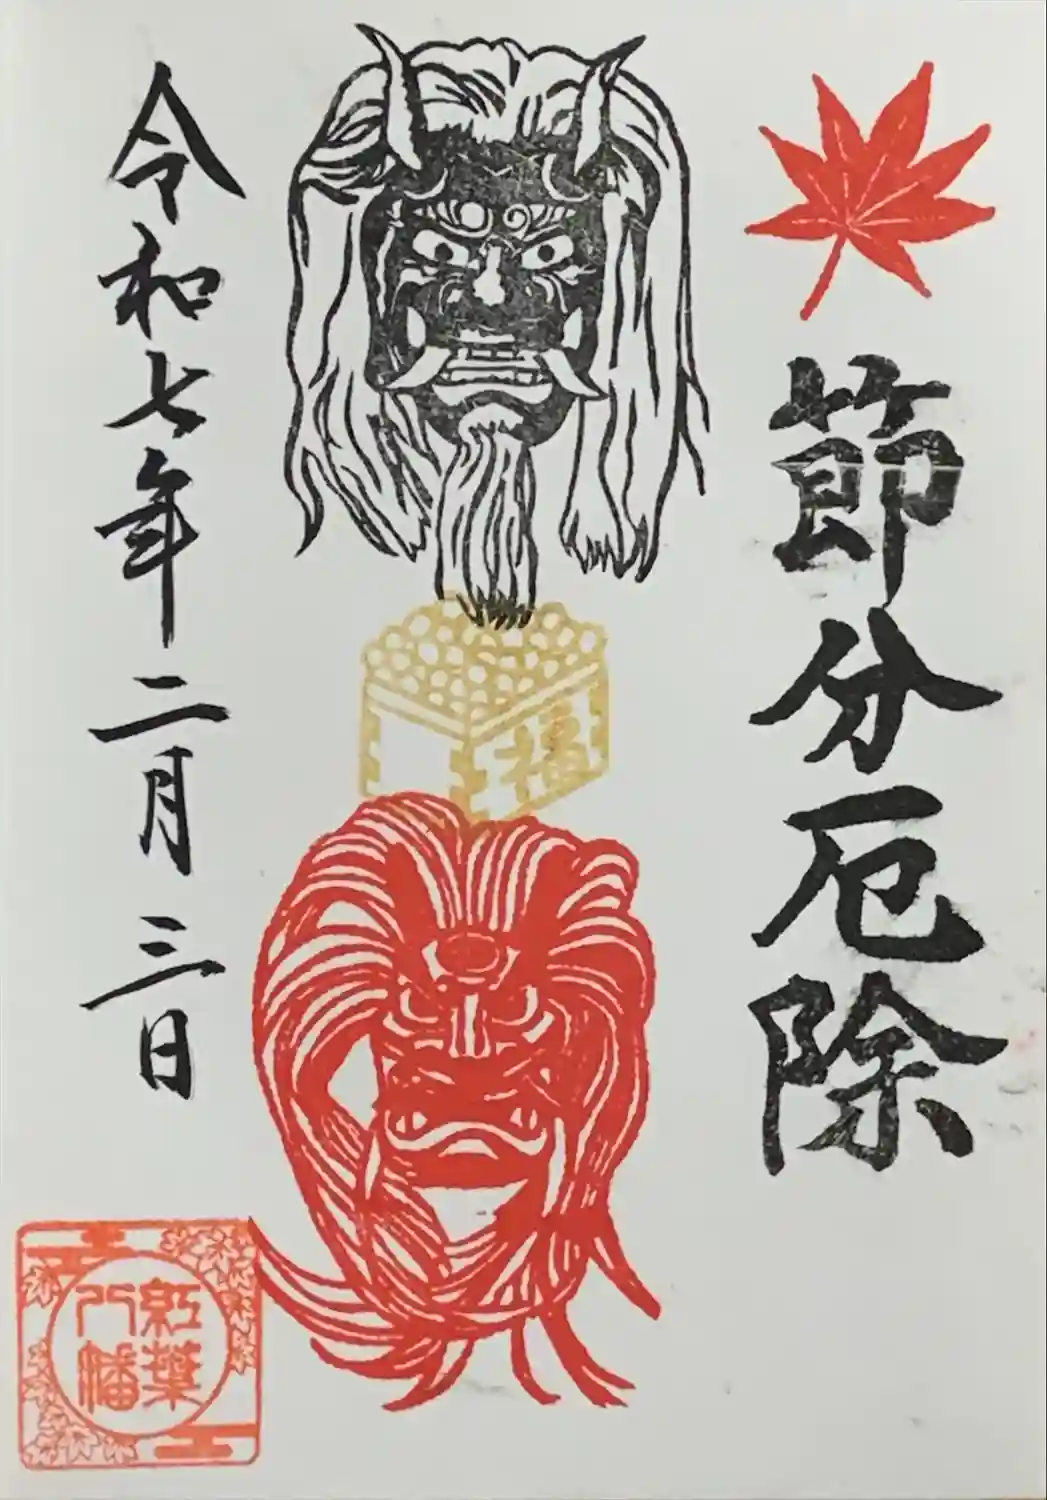 節分厄除
福
令和七年二月三日
紅葉
八幡